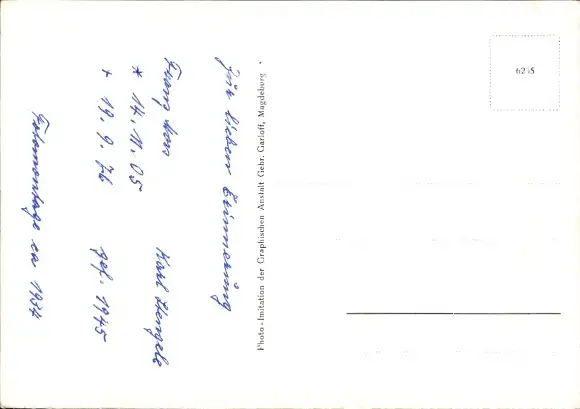 Zur lieben Erinnerung
Franz Karl Stengele
* 14. 11. 05 gef. 1945
+ 19. 9. 76
Fotomontage ca 1934
Photo-Imitation der Graphischen Anstalt Gebr. Garloff, Magdeburg
6215